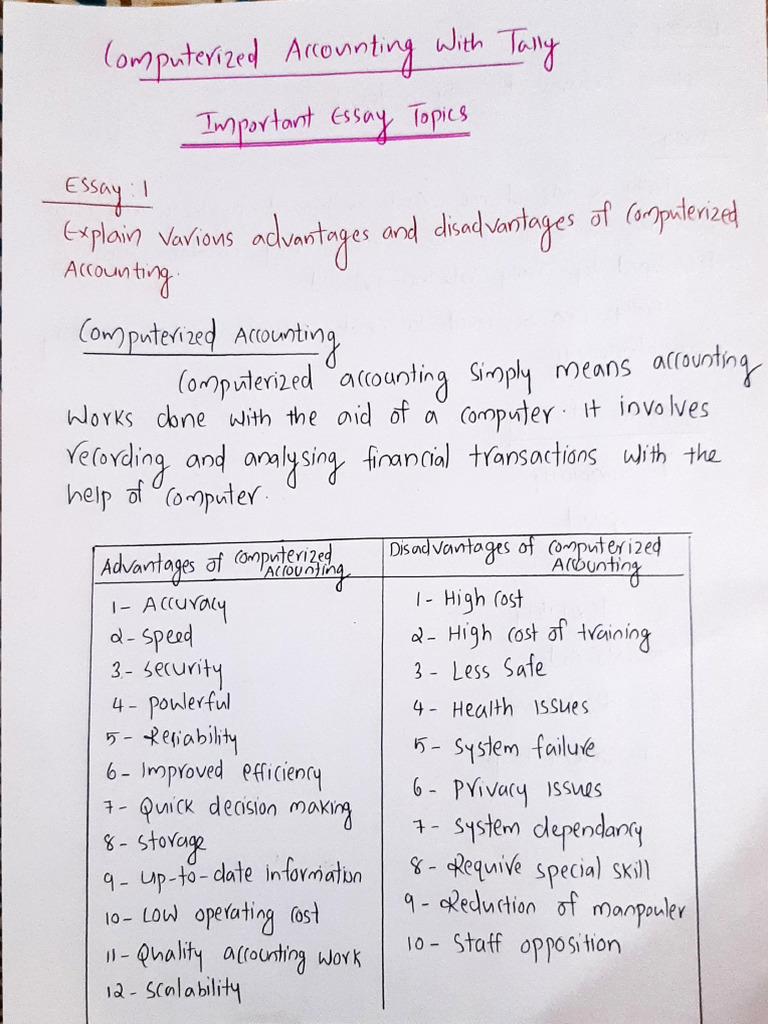 Computerized Accounting With Tally
Important Essay Topics
Essay : 1
Explain various advantages and disadvantages of Computerized
Accounting.
Computerized Accounting
Computerized accounting simply means accounting
works done with the aid of a computer. It involves
recording and analysing financial transactions with the
help of computer.
Advantages of Computerized
Accounting
1- Accuracy
2- Speed
3- Security
4- Powerful
5- Reliability
6- Improved efficiency
7- Quick decision making
8- Storage
9- Up-to-date information
10- Low operating cost
11- Quality accounting work
12- Scalability
Disadvantages of Computerized
Accounting
1- High cost
2- High cost of training
3- Less Safe
4- Health Issues
5- System failure
6- Privacy Issues
7- System dependancy
8- Require special skill
9- Reduction of manpower
10- Staff opposition